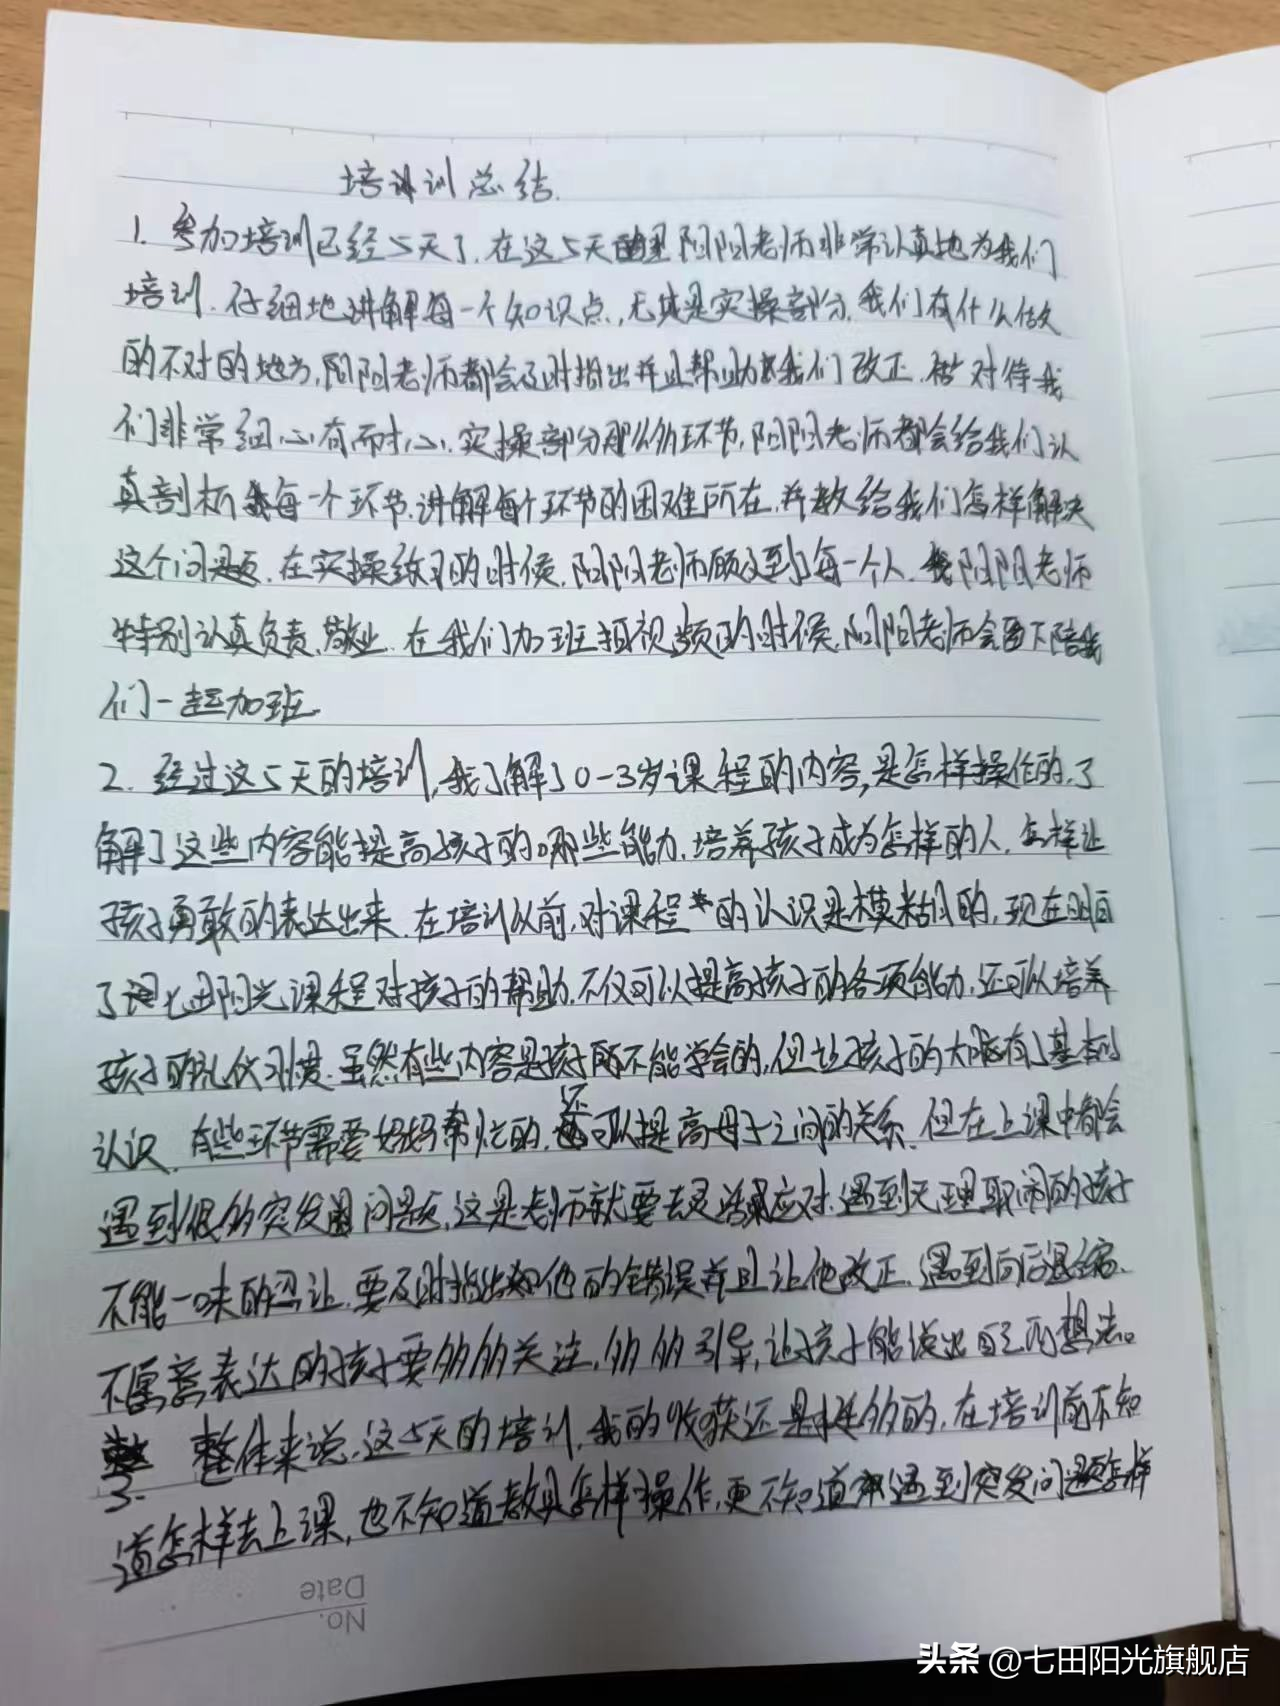 培训总结.
1. 参加培训已经5天了.在这5天里阳阳老师非常认真地为我们
培训.仔细地讲解每一个知识点,尤其是实操部分.我们有什么做
的不对的地方,阳阳老师都会及时指出并且帮助我们改正.对待我
们非常细心有耐心.实操部分那么多环节,阳阳老师都会给我们认
真剖析每一个环节.讲解每个环节的困难所在.并教给我们怎样解决
这个问题.在实操练习的时候.阳阳老师顾及到每一个人.阳阳老师
特别认真负责.敬业.在我们加班拍视频的时候.阳阳老师会留下陪我
们一起加班.
2. 经过这5天的培训,我了解了0-3岁课程的内容,是怎样操作的.了
解了这些内容能提高孩子的哪些能力.培养孩子成为怎样的人.怎样让
孩子勇敢的表达出来.在培训以前,对课程的认识是模糊的,现在明白
了七田阳光课程对孩子的帮助.不仅可以提高孩子的各项能力,还可以培养
孩子的礼仪习惯.虽然有些内容是孩子所不能学会的,但让孩子的大脑有了基本的
认识.有些环节需要妈妈帮忙的.还可以提高母子之间的关系.但在上课中都会
遇到很多突发问题,这是老师就要去灵活应对.遇到无理取闹的孩子
不能一味的忍让.要及时指出他的错误并且让他改正.遇到向后退缩.
不愿意表达的孩子要多多的关注,多多引导,让孩子能说出自己的想法。
3. 整体来说.这5天的培训,我的收获还是挺多的.在培训前不知
道怎样去上课,也不知道教具怎样操作,更不知道遇到突发问题怎样
No.
Date
头条 @七田阳光旗舰店